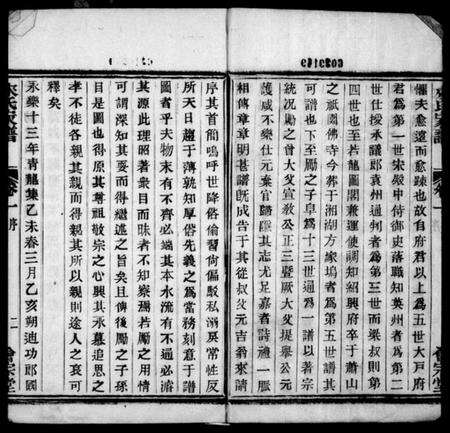 懼夫愈遠而愈踈也故自府君以上爲五世大戸府
君爲第一世宋殿中侍御史落職知英州者爲第二
世仕授承議郎袁州通判者爲第三世而梁叔則第
四世也至若龍圖閣兼運使調知紹興府卒于蕭山
之祇園佛寺今葬于湘湖方家塢者爲第五世譜其
可譜也下至勵之子阜爲十三世通爲一譜以著宗
統况勵之曾大父宣教公正三曁厥大父提舉公元
護咸不樂仕元棄官歸隱其志尤足嘉者詩禮一脈
相傳章章明甚譜旣成告于其從叔父元吉翁來請
序其首簡嗚呼世降俗偷習尚偏駁私溺莫常性反
所天日趨于薄孰知厚俗先義之爲當務刻意于譜
圖者乎夫物末有不齊必端其本水流有不通必濬
其源此理昭著衆目而昧者不知察焉若勵之用情
可謂深知其要而得繼述之旨矣且俾後勵之子孫
目是圖也得原其尊祖敬宗之心興其永墓追思之
孝不徒各親其親而得親其所以親則途人之哀可
釋矣
永樂十三年青龍集乙未春三月乙亥朔迪功郎國
來氏家譜
卷一 序
二
會宗堂